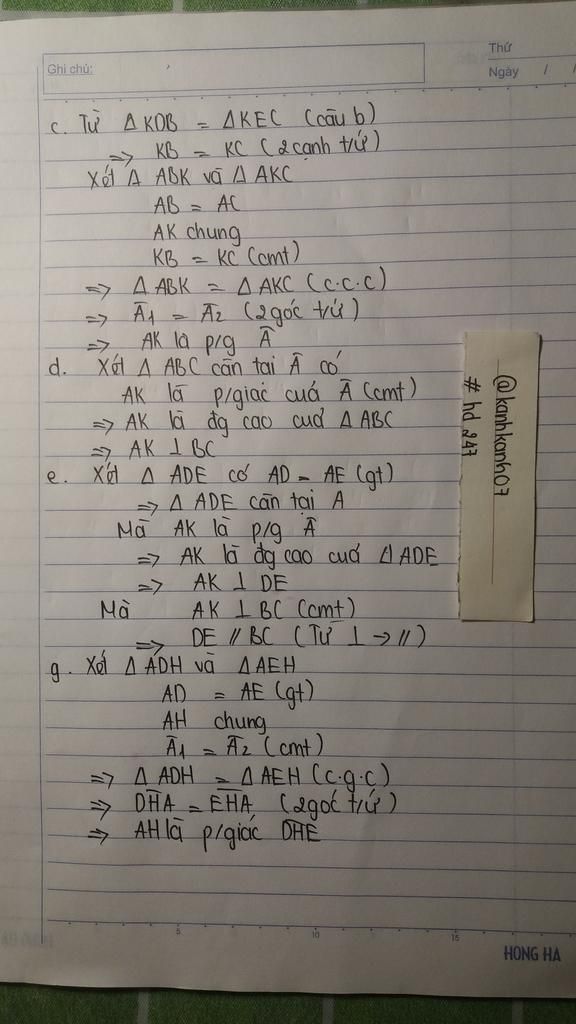 Ghi chú:
Thứ
Ngày / /
c. Từ Δ KDB = Δ KEC (câu b)
=> KB = KC (2 cạnh t/ứ)
Xét Δ ABK và Δ AKC
AB = AC
AK chung
KB = KC (cmt)
=> Δ ABK = Δ AKC (c.c.c)
=> Â1 = Â2 (2 góc t/ứ)
=> AK là p/g Â
d. Xét Δ ABC cân tại Â có
AK là p/giác cuả Â (cmt)
=> AK là đg cao cuả Δ ABC
=> AK ⊥ BC
e. Xét Δ ADE có AD = AE (gt)
=> Δ ADE cân tại A
Mà AK là p/g Â
=> AK là đg cao cuả Δ ADE
=> AK ⊥ DE
Mà AK ⊥ BC (cmt)
=> DE // BC (Từ ⊥ → //)
g. Xét Δ ADH và Δ AEH
AD = AE (gt)
AH chung
Â1 = Â2 (cmt)
=> Δ ADH = Δ AEH (c.g.c)
=> DĤA = EĤA (2 góc t/ứ)
=> AH là p/giác DĤE
@kanhkanh07
# hd 247
5 10 15
HONG HA